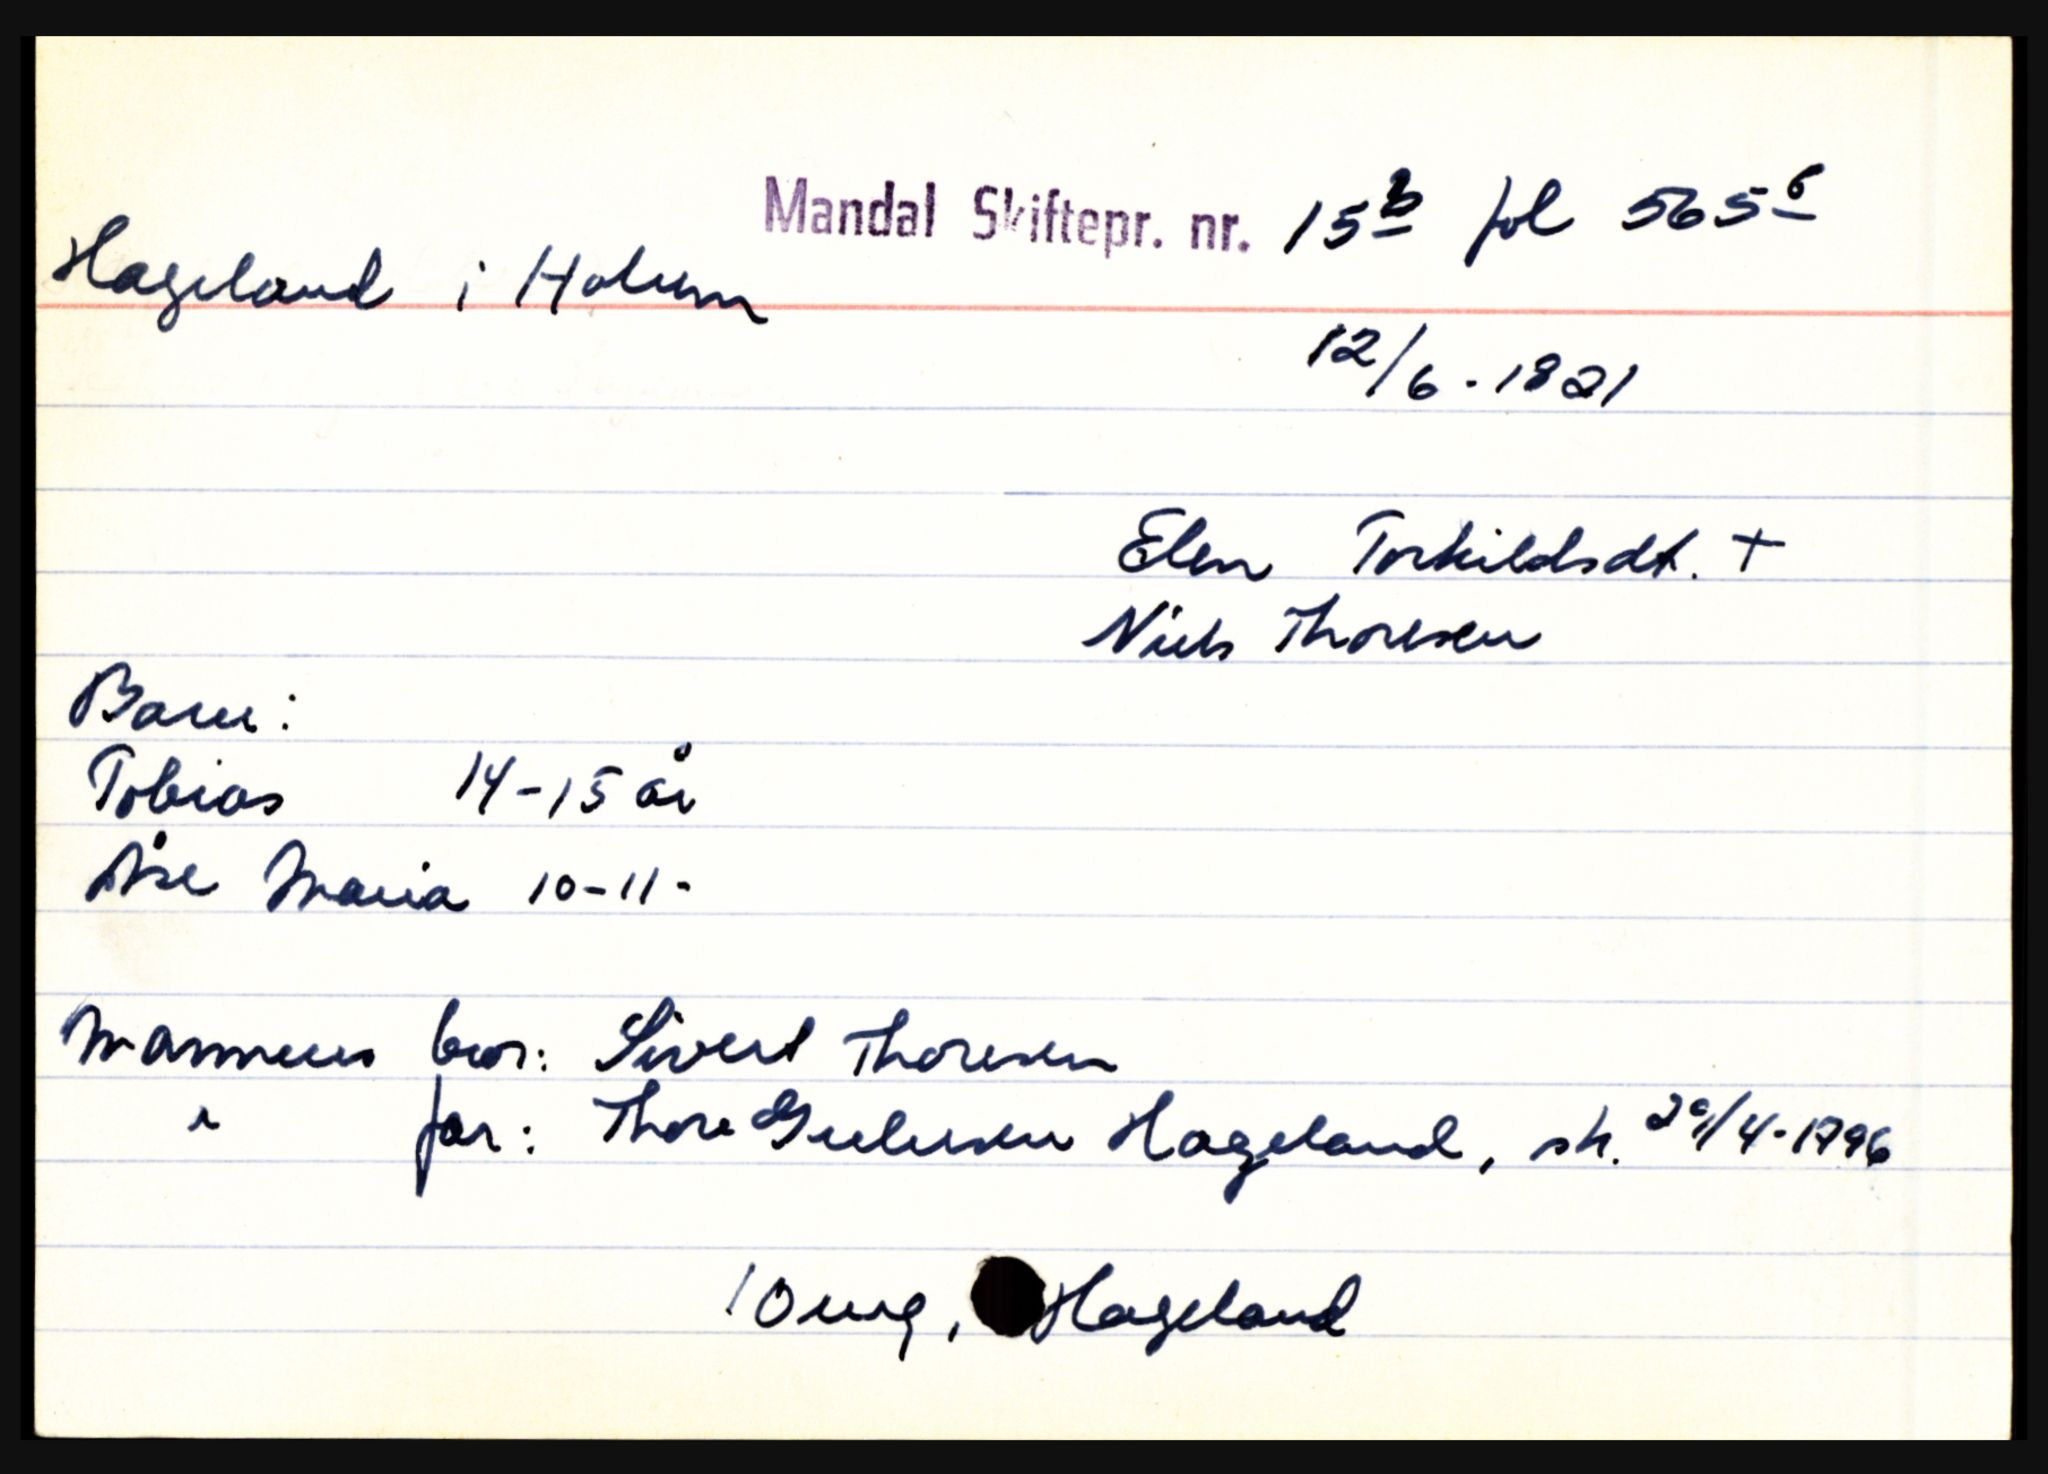 Mandal Skiftepr. nr. 15b fol 565b
Hageland i Holum
12/6 - 1821
Elen Torkildsdt. +
Niels Thoresen
Barn:
Tobias 14-15 år
Åse Maria 10-11 -
Mannens bror: Sivert Thoresen
" far: Thore Gulusen Hageland, sk. /4-1796
1 hug, Hageland